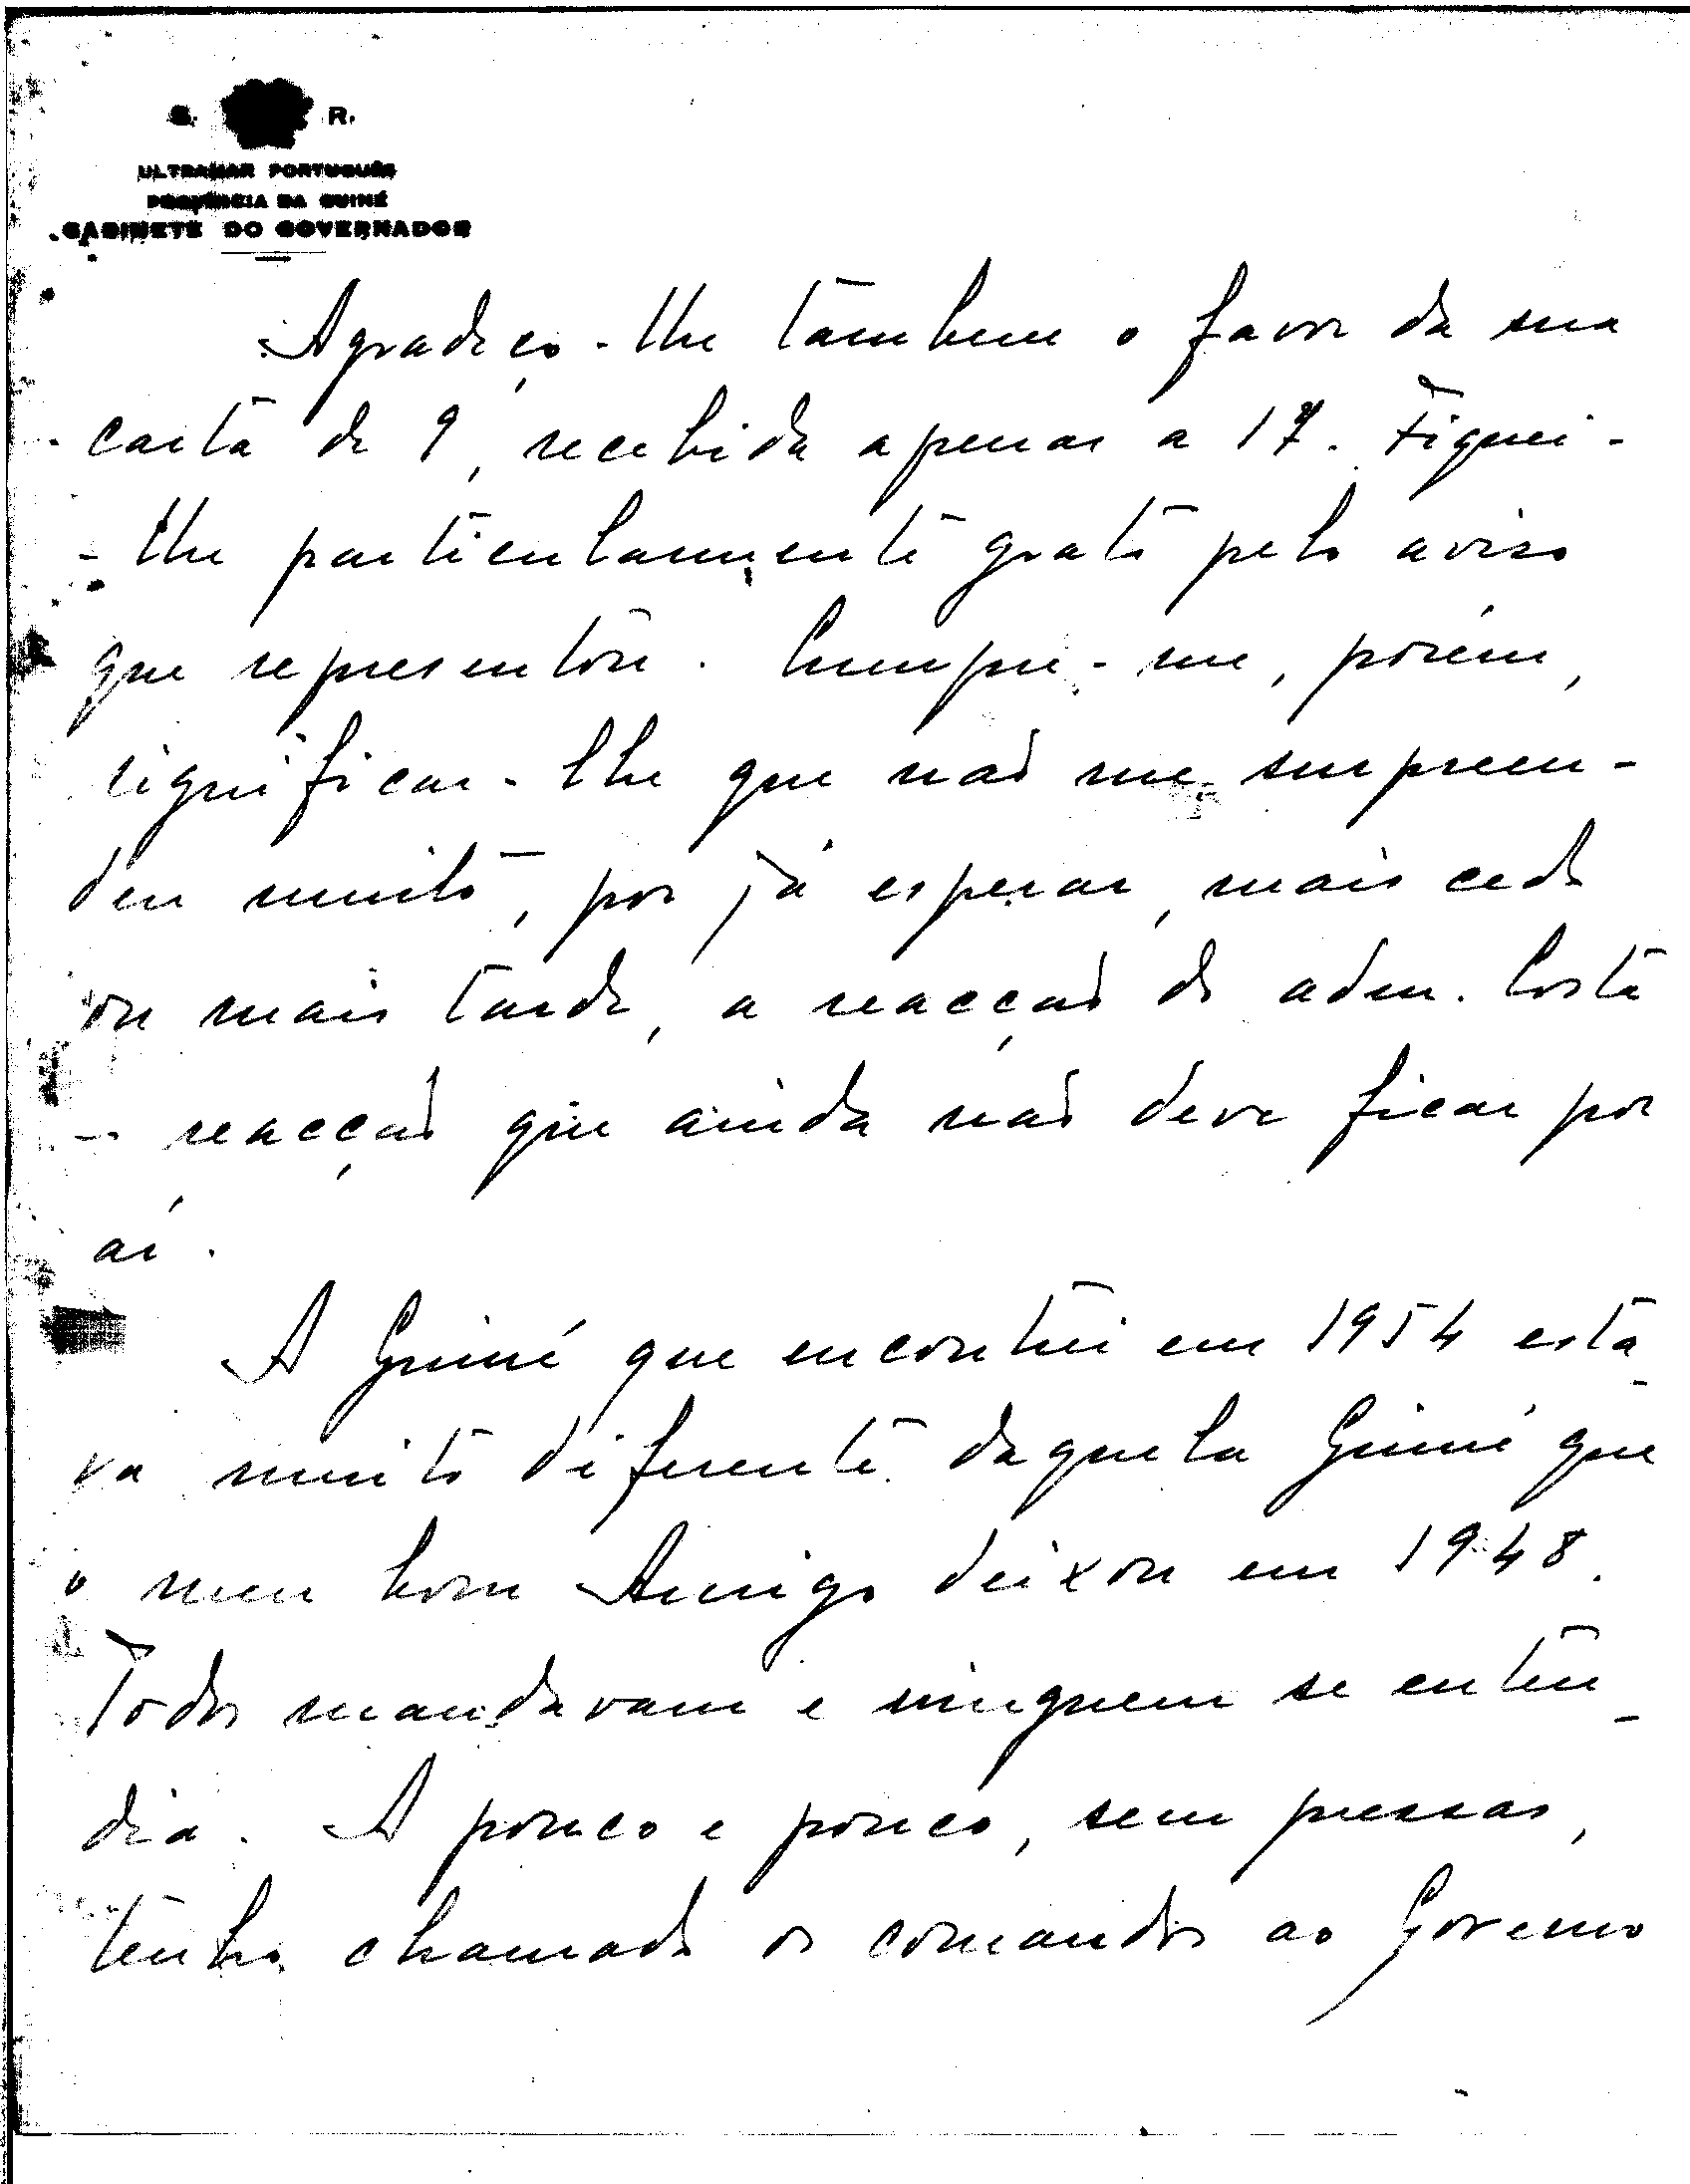 S. R.
ULTRAMAR PORTUGUÊS
PROVÍNCIA DA GUINÉ
GABINETE DO GOVERNADOR
Agradeço-lhe tambem o favor da sua
carta de 9, recebida apenas a 17. Fiquei-
-lhe particularmente grato pelo aviso
que representou. Cumpre-me, porém,
significar-lhe que não me surpreen-
deu muito, por já esperar, mais cedo
ou mais tarde, a reacção do adm. Costa
- reacção que ainda não deve ficar por
aí.
A Guiné que encontrei em 1954 esta-
va muito diferente daquela Guiné que
o meu bom Amigo deixou em 1948.
Todos mandavam e ninguem se enten-
dia. A pouco e pouco, sem pressas,
tenho chamado os comandos ao Governo